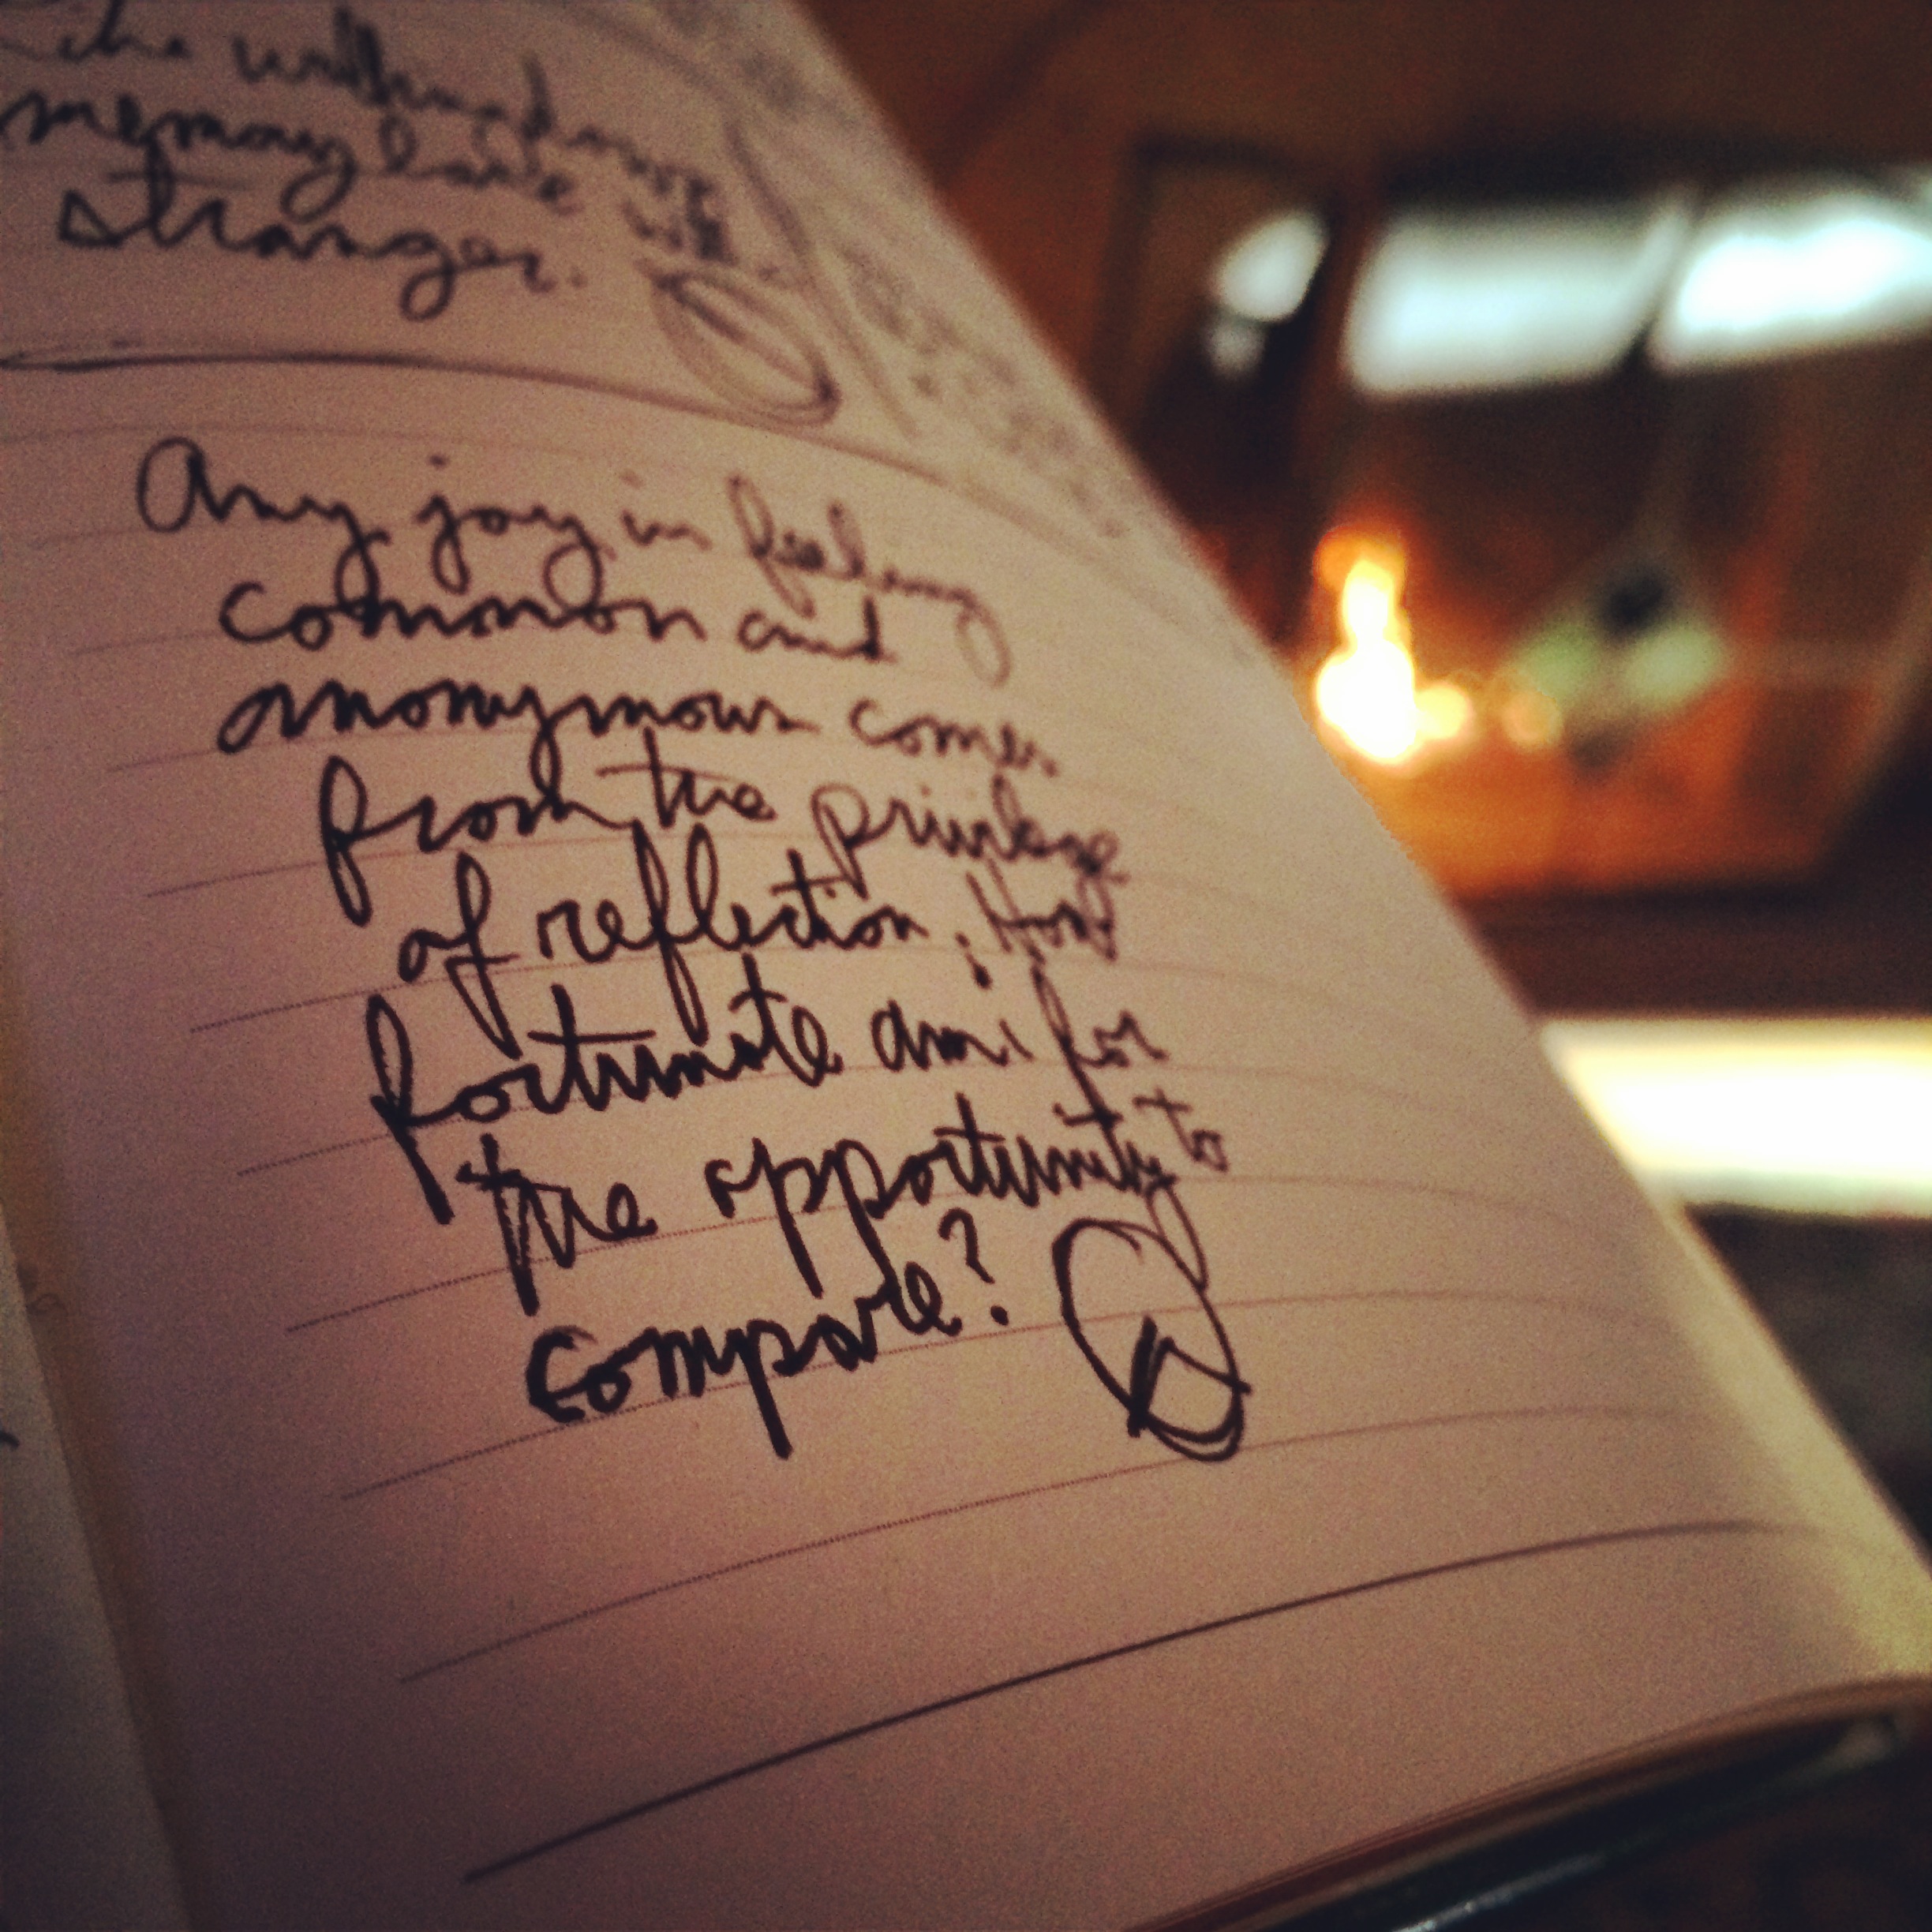 like walking down
memory lane with
stranger.
Any joy in feeling
common and
anonymous comes
from the privilege
of reflection. How
fortunate am i for
the opportunity to
compare?